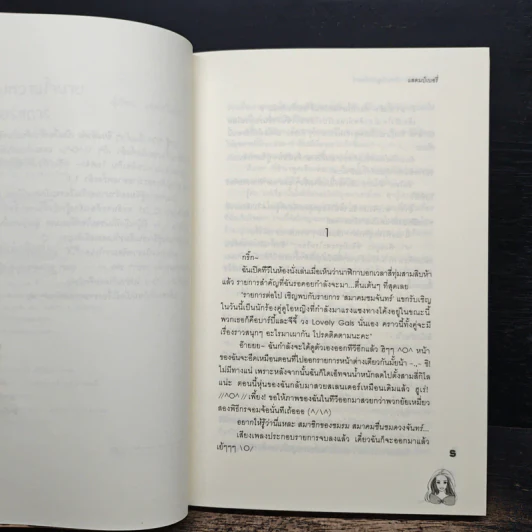 แสตมป์เบอรี่
1
กริ๊ก~
ฉันเปิดทีวีในห้องนั่งเล่นเมื่อเห็นว่านาฬิกาบอกเวลาสี่ทุ่มสามสิบห้า
แล้ว รายการสำคัญที่ฉันรอคอยกำลังจะมา...ตื่นเต้นๆ ที่สุดเลย
"รายการต่อไป เชิญพบกับรายการ 'สมาคมชมจันทร์' แขกรับเชิญ
ในวันนี้เป็นนักร้องคู่ดูโอหญิงที่กำลังมาแรงแซงทางโค้งอยู่ในขณะนี้
พวกเธอก็คือบาร์บี้และจีจี้ วง Lovely Gals นั่นเอง คราวนี้ทั้งคู่จะมี
เรื่องราวสนุกๆ อะไรมาเมากัน โปรดติดตามนะคะ"
อ๊ายยย~ ฉันกำลังจะได้ดูตัวเองออกทีวีอีกแล้ว ฮิๆๆ ^O^ หน้า
ของฉันจะอืดเหมือนตอนที่ไปออกรายการหน้าต่างเดียวกันมั้ยน้า -..- ชิ!
ไม่มีทางแน่ เพราะหลังจากนั้นฉันก็ไดเอ็ทจนน้ำหนักลดไปตั้งสามสี่กิโล
แน่ะ ตอนนี้หุ่นของฉันกลับมาสวยสเลนเดอร์เหมือนเดิมแล้ว ฮูเร่!
//^O^// เพี้ยง! ขอให้ภาพของฉันในทีวีออกมาสวยกว่าพวกยัยเหมี่ยว
สองพิธีกรจอมจ้อนั่นทีเถ้ออ (^/\^)
อยากให้รู้ว่านี่แหละ สมาชิกของชมรม สมาคมชื่นชมดวงจันทร์...
เสียงเพลงประกอบรายการจบลงแล้ว เดี๋ยวฉันก็จะออกมาแล้ว
เย้ๆๆๆ \O/
5